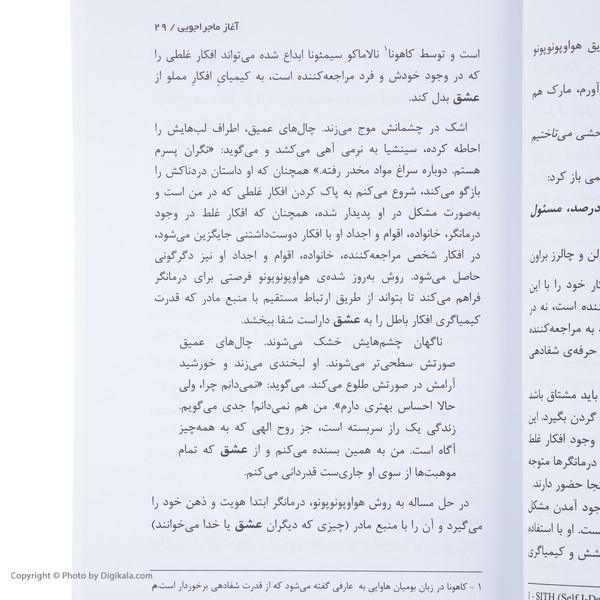 آغاز ماجراجویی / ۲۹
است و توسط کاهونا¹ نالاماکو سیمئونا ابداع شده می‌تواند افکار غلطی را
که در وجود خودش و فرد مراجعه‌کننده است، به کیمیایِ افکارِ مملو از
عشق بدل کند.
اشک در چشمانش موج می‌زند. چال‌های عمیق، اطراف لب‌هایش را
احاطه کرده، سینشیا به نرمی آهی می‌کشد و می‌گوید: «نگران پسرم
هستم. دوباره سراغ مواد مخدر رفته.» همچنان که او داستان دردناکش را
بازگو می‌کند، شروع می‌کنم به پاک کردن افکار غلطی که در من است و
به‌صورت مشکل در او پدیدار شده، همچنان که افکار غلط در وجود
درمانگر، خانواده، اقوام و اجداد او با افکار دوست‌داشتنی جایگزین می‌شود،
در افکار شخص مراجعه‌کننده، خانواده، اقوام و اجداد او نیز دگرگونی
حاصل می‌شود. روش به‌روز شده‌ی هواوپونوپونو فرصتی برای درمانگر
فراهم می‌کند تا بتواند از طریق ارتباط مستقیم با منبع مادر که قدرت
کیمیاگری افکار باطل را به عشق داراست شفا ببخشد.
ناگهان چشم‌هایش خشک می‌شوند. چال‌های عمیق
صورتش سطحی‌تر می‌شوند. او لبخندی می‌زند و خورشید
آرامش در صورتش طلوع می‌کند. می‌گوید: «نمی‌دانم چرا، ولی
حالا احساس بهتری دارم». من هم نمی‌دانم! جدی می‌گویم.
زندگی یک راز سربسته است، جز روح الهی که به همه‌چیز
آگاه است. من به همین بسنده می‌کنم و از عشق که تمام
موهبت‌ها از سوی او جاری‌ست قدردانی می‌کنم.
در حل مساله به روش هواوپونوپونو، درمانگر ابتدا هویت و ذهن خود را
می‌گیرد و آن را با منبع مادر (چیزی که دیگران عشق یا خدا می‌خوانند)
۱ - کاهونا در زبان بومیان هاوایی به عارفی گفته می‌شود که از قدرت شفادهی برخوردار است.م
یق هواوپونوپونو
آورم، مارک هم
حشی می‌تاختیم
می باز کرد:
درصد، مسئول
لن و چالرز براون
کار خود را با این
ننده است، نه در
به مراجعه‌کننده
حرفه‌ی شفادهی
باید مشتاق باشد
گردن بگیرد. این
وجود افکار غلط
درمانگرها متوجه
نجا حضور دارند.
جود آمدن مشکل
ست. او با استفاده
شش و کیمیاگری
1- SITH (Self I-De
Copyright © Photo by Digikala.com